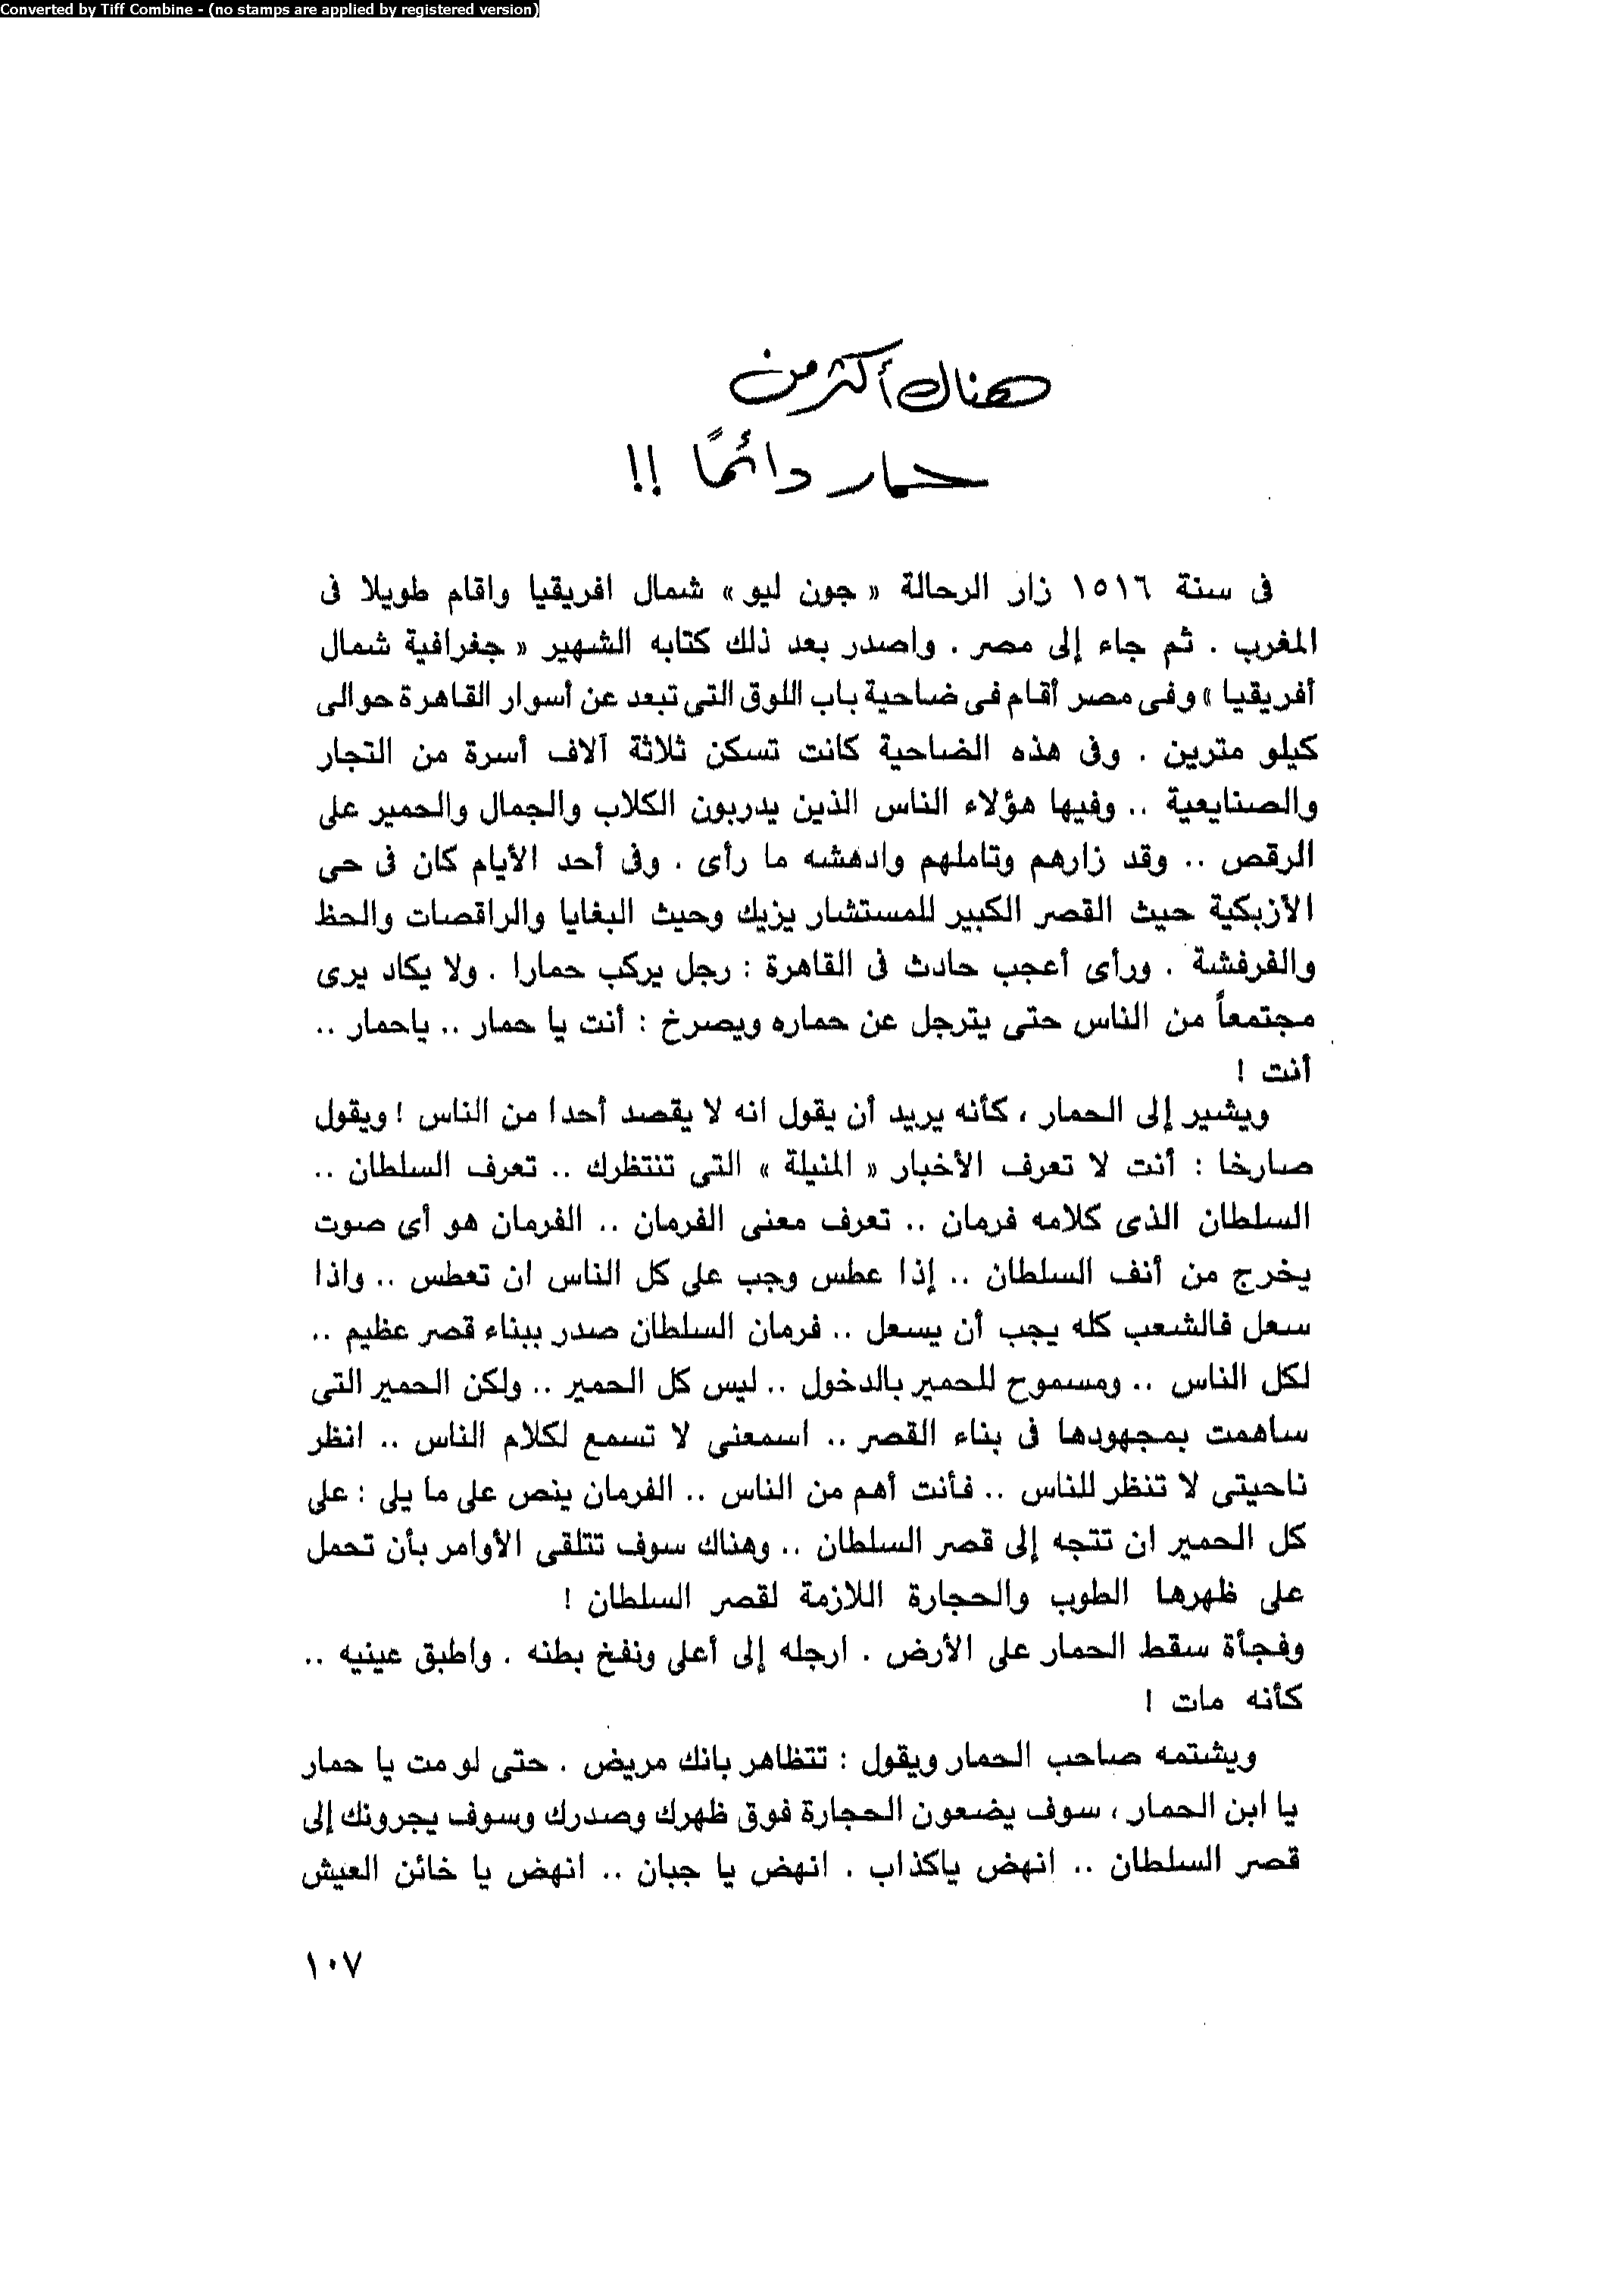 Converted by Tiff Combine - (no stamps are applied by registered version)
هناك أكثر من
حمار دائمًا !!
فى سنة ١٥١٦ زار الرحالة « جون ليو » شمال افريقيا واقام طويلا فى
المغرب . ثم جاء إلى مصر . واصدر بعد ذلك كتابه الشهير « جغرافية شمال
أفريقيا » وفى مصر أقام فى ضاحية باب اللوق التى تبعد عن أسوار القاهرة حوالى
كيلو مترين . وفى هذه الضاحية كانت تسكن ثلاثة آلاف أسرة من التجار
والصنايعية .. وفيها هؤلاء الناس الذين يدربون الكلاب والجمال والحمير على
الرقص .. وقد زارهم وتاملهم وادهشه ما رأى . وفى أحد الأيام كان فى حى
الأزبكية حيث القصر الكبير للمستشار يزيك وحيث البغايا والراقصات والحظ
والفرفشة . ورأى أعجب حادث فى القاهرة : رجل يركب حمارا . ولا يكاد يرى
مجتمعاً من الناس حتى يترجل عن حماره ويصرخ : أنت يا حمار .. ياحمار ..
أنت !
ويشير إلى الحمار ، كأنه يريد أن يقول انه لا يقصد أحدا من الناس ! ويقول
صارخا : أنت لا تعرف الأخبار « المنيلة » التى تنتظرك .. تعرف السلطان ..
السلطان الذى كلامه فرمان .. تعرف معنى الفرمان .. الفرمان هو أى صوت
يخرج من أنف السلطان .. إذا عطس وجب على كل الناس ان تعطس .. واذا
سعل فالشعب كله يجب أن يسعل .. فرمان السلطان صدر ببناء قصر عظيم ..
لكل الناس .. ومسموح للحمير بالدخول .. ليس كل الحمير .. ولكن الحمير التى
ساهمت بمجهودها فى بناء القصر .. اسمعنى لا تسمع لكلام الناس .. انظر
ناحيتى لا تنظر للناس .. فأنت أهم من الناس .. الفرمان ينص على ما يلى : على
كل الحمير ان تتجه إلى قصر السلطان .. وهناك سوف تتلقى الأوامر بأن تحمل
على ظهرها الطوب والحجارة اللازمة لقصر السلطان !
وفجأة سقط الحمار على الأرض . ارجله إلى أعلى ونفخ بطنه . واطبق عينيه ..
كأنه مات !
ويشتمه صاحب الحمار ويقول : تتظاهر بانك مريض . حتى لو مت يا حمار
يا ابن الحمار ، سوف يضعون الحجارة فوق ظهرك وصدرك وسوف يجرونك إلى
قصر السلطان .. انهض ياكذاب . انهض يا جبان .. انهض يا خائن العيش
١٠٧